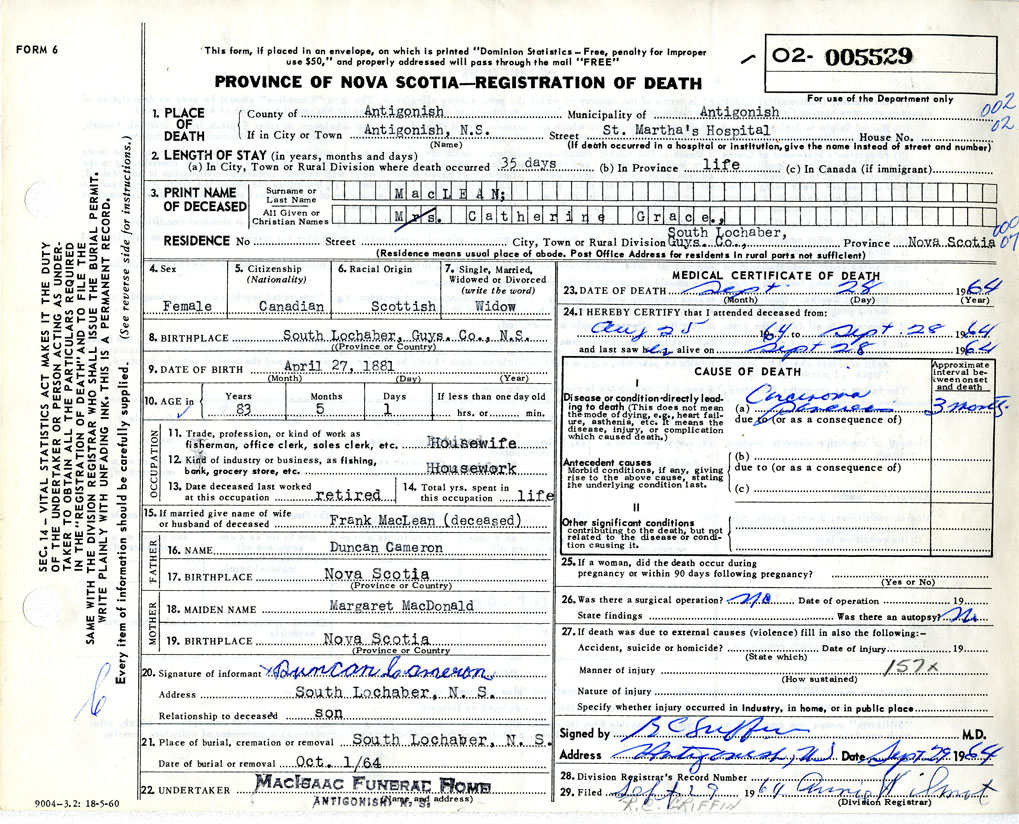 FORM 6
This form, if placed in an envelope, on which is printed "Dominion Statistics – Free, penalty for improper
use $50," and properly addressed will pass through the mail "FREE"
PROVINCE OF NOVA SCOTIA—REGISTRATION OF DEATH
02- 005529
For use of the Department only
002
02
1. PLACE OF DEATH
County of Antigonish Municipality of Antigonish
If in City or Town Antigonish, N.S. Street St. Martha's Hospital House No.
(Name) (If death occurred in a hospital or institution, give the name instead of street and number)
2. LENGTH OF STAY (in years, months and days)
(a) In City, Town or Rural Division where death occurred 35 days (b) In Province life (c) In Canada (if immigrant)
3. PRINT NAME OF DECEASED
Surname or Last Name MacLEAN;
All Given or Christian Names Mrs. Catherine Grace.,
South Lochaber,
RESIDENCE No Street City, Town or Rural Division Guys. Co., Province Nova Scotia 07
(Residence means usual place of abode. Post Office Address for residents in rural parts not sufficient)
4. Sex
Female
5. Citizenship
(Nationality)
Canadian
6. Racial Origin
Scottish
7. Single, Married,
Widowed or Divorced
(write the word)
Widow
8. BIRTHPLACE South Lochaber, Guys. Co., N.S.
((Province or Country)
9. DATE OF BIRTH April 27, 1881
(Month) (Day) (Year)
10. AGE in
Years Months Days If less than one day old
83 5 1 hrs. or min.
OCCUPATION
11. Trade, profession, or kind of work as
fisherman, office clerk, sales clerk, etc. Housewife
12. Kind of industry or business, as fishing,
bank, grocery store, etc. Housework
13. Date deceased last worked
at this occupation retired
14. Total yrs. spent in
this occupation life
15. If married give name of wife
or husband of deceased Frank MacLean (deceased)
FATHER
16. NAME Duncan Cameron
17. BIRTHPLACE Nova Scotia
(Province or Country)
MOTHER
18. MAIDEN NAME Margaret MacDonald
19. BIRTHPLACE Nova Scotia
(Province or Country
20. Signature of informant x Duncan Cameron
Address South Lochaber, N. S.
Relationship to deceased son
21. Place of burial, cremation or removal South Lochaber, N. S.
Date of burial or removal Oct. 1/64
22. UNDERTAKER MacIsaac Funeral Home
ANTIGONISH N. S. (Name and address)
MEDICAL CERTIFICATE OF DEATH
23. DATE OF DEATH Sept. 28 1964
(Month) (Day) (Year)
24. I HEREBY CERTIFY that I attended deceased from:
Aug 25 1964 to Sept. 28 1964
and last saw her alive on Sept 28 1964
CAUSE OF DEATH
Approximate
interval be-
tween onset
and death
I
Disease or condition directly lead-
ing to death (This does not mean
the mode of dying, e.g., heart fail-
ure, asthenia, etc. It means the
disease, injury, or complication
which caused death.)
Carcinoma
(a) Pancreas 3 months
due to (or as a consequence of)
Antecedent causes
Morbid conditions, if any, giving
rise to the above cause, stating
the underlying condition last.
(b)
due to (or as a consequence of)
(c)
II
Other significant conditions
contributing to the death, but not
related to the disease or condi-
tion causing it.
25. If a woman, did the death occur during
pregnancy or within 90 days following pregnancy?
(Yes or No)
26. Was there a surgical operation? No Date of operation 19
State findings Was there an autopsy? No
27. If death was due to external causes (violence) fill in also the following:–
Accident, suicide or homicide? Date of injury 19
(State which)
Manner of injury 157x
(How sustained)
Nature of injury
Specify whether injury occurred in industry, in home, or in public place
Signed by M.D.
Address Antigonish, NS Date Sept 29 1964
28. Division Registrar's Record Number
29. Filed Sept 29 1964
(Division Registrar)
R.C. GRIFFIN
9004-3.2: 18-5-60
SEC. 14 – VITAL STATISTICS ACT MAKES IT THE DUTY
OF THE UNDERTAKER OR PERSON ACTING AS UNDER-
TAKER TO OBTAIN ALL THE PARTICULARS REQUIRED
IN THE "REGISTRATION OF DEATH" AND TO FILE THE
SAME WITH THE DIVISION REGISTRAR WHO SHALL ISSUE THE BURIAL PERMIT.
WRITE PLAINLY WITH UNFADING INK. THIS IS A PERMANENT RECORD.
Every item of information should be carefully supplied. (See reverse side for instructions.)